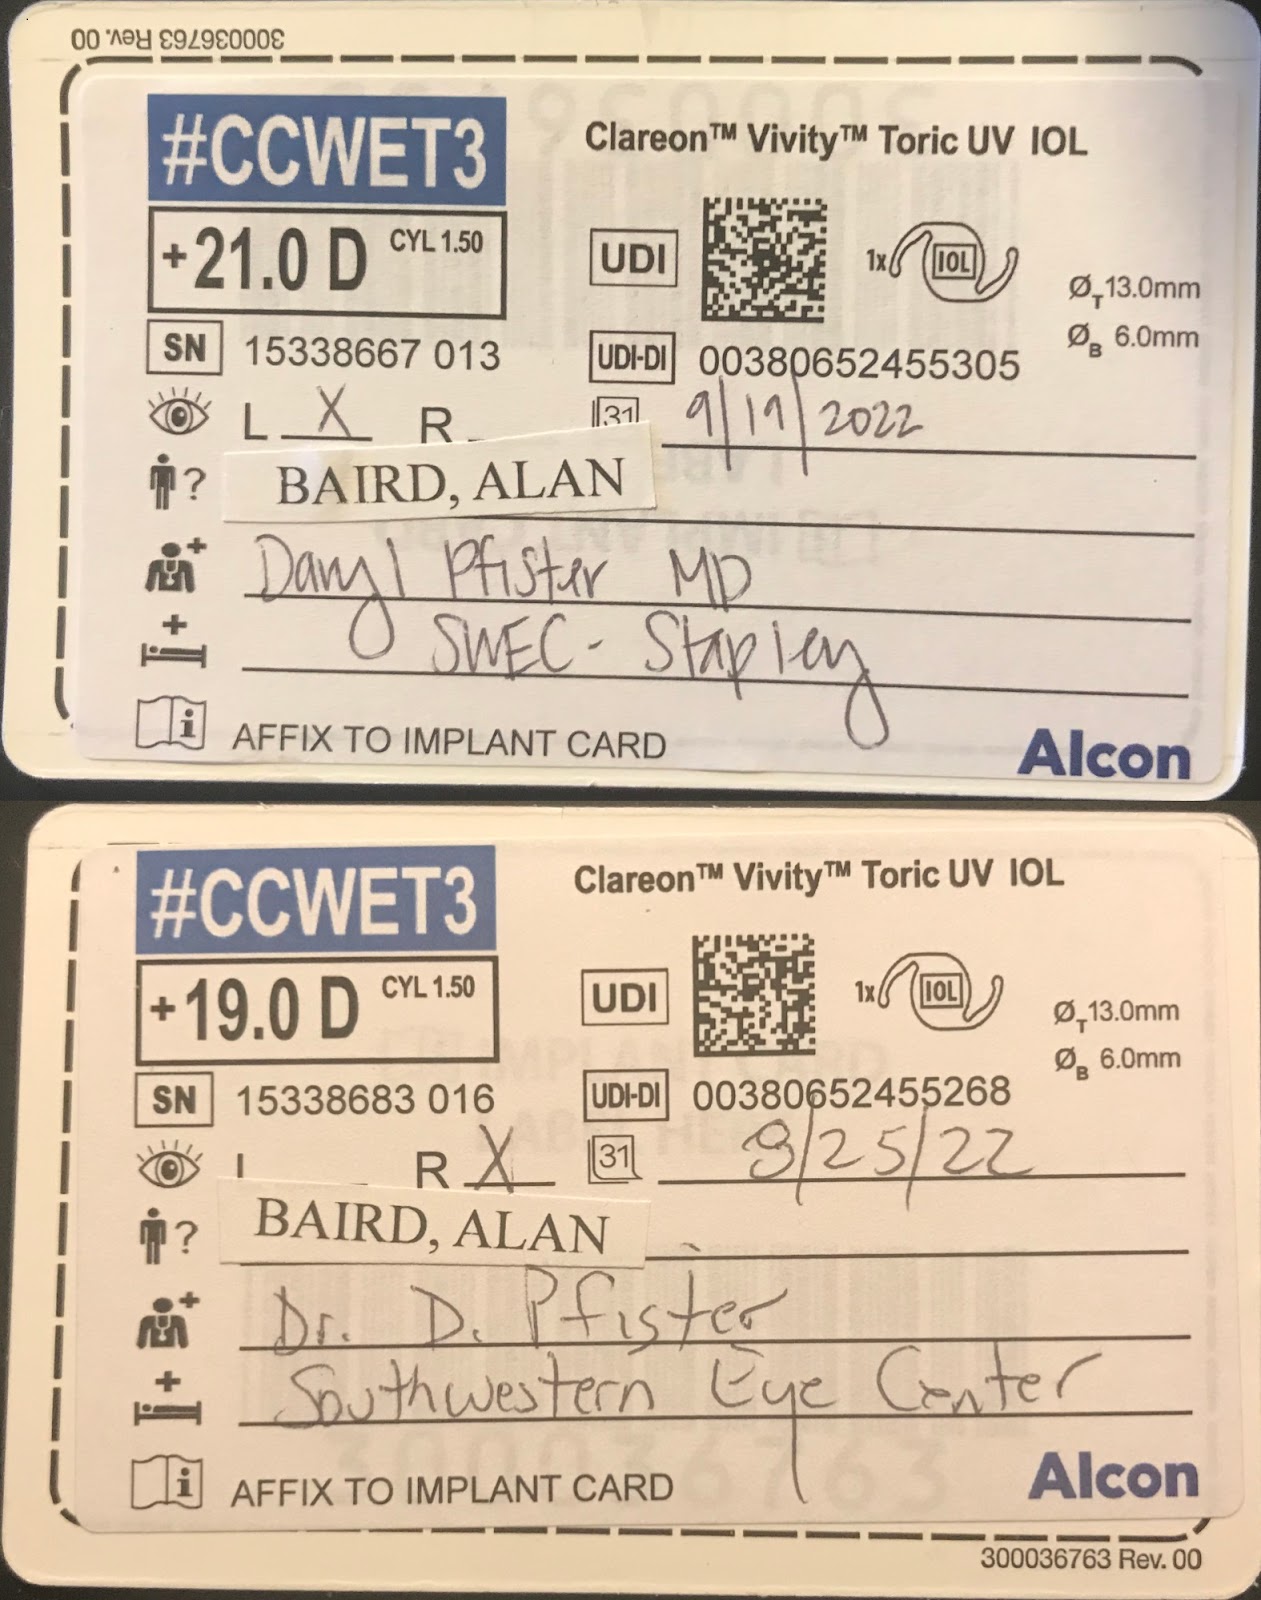 300036763 Rev. 00
#CCWET3
Clareon™ Vivity™ Toric UV IOL
+21.0 D CYL 1.50
UDI
1x IOL
ØT 13.0mm
ØB 6.0mm
SN 15338667 013
UDI-DI 00380652455305
L X R
31 9/19/2022
? BAIRD, ALAN
Daryl Pfister MD
SWEC - Stapley
i AFFIX TO IMPLANT CARD
Alcon
#CCWET3
Clareon™ Vivity™ Toric UV IOL
+19.0 D CYL 1.50
UDI
1x IOL
ØT 13.0mm
ØB 6.0mm
SN 15338683 016
UDI-DI 00380652455268
L R X
31 /25/22
? BAIRD, ALAN
Dr. D. Pfister
Southwestern Eye Center
i AFFIX TO IMPLANT CARD
Alcon
300036763 Rev. 00